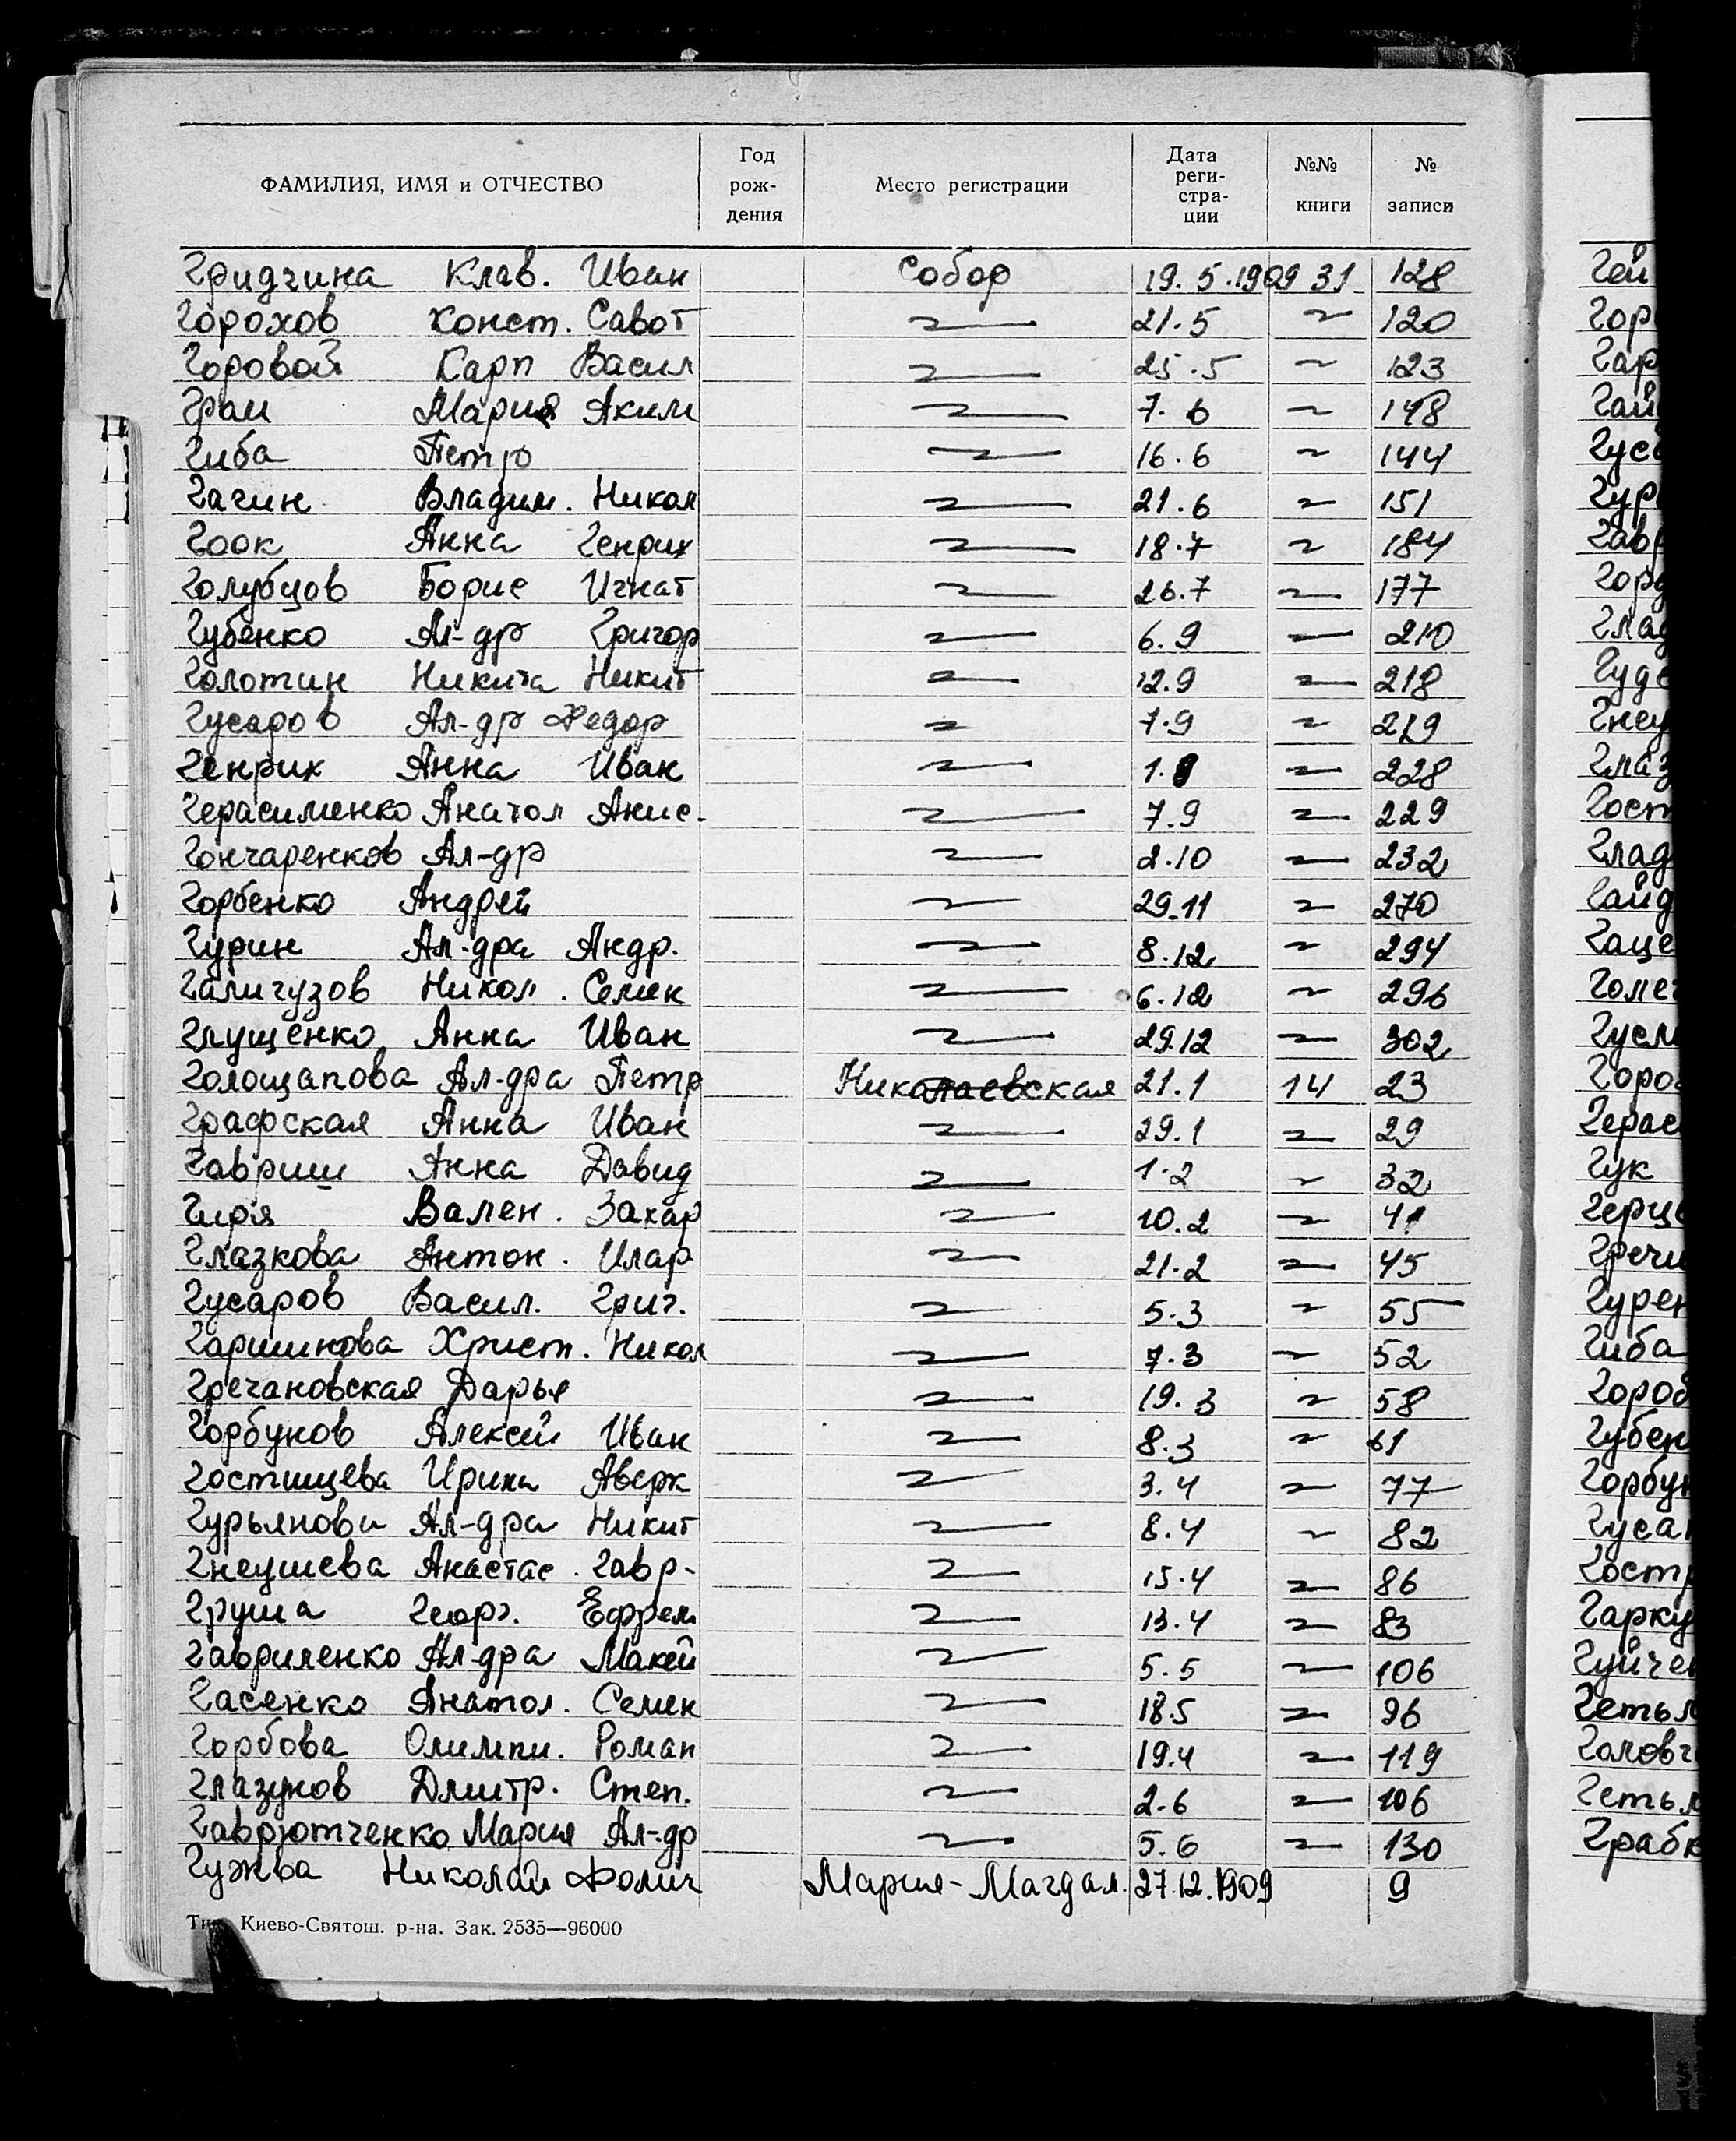 ФАМИЛИЯ, ИМЯ и ОТЧЕСТВО Год рож- дения Место регистрации Дата реги- стра- ции №№ книги № записи
Гридчина Клав. Иван Собор 19.5.1909 31 128
Горохов Конст. Савот 〃 21.5 〃 120
Горовой Карп Васил 〃 25.5 〃 123
Грам Мария Аким 〃 7.6 〃 148
Гиба Петро 〃 16.6 〃 144
Гагин Владим. Никол 〃 21.6 〃 151
Гоок Анна Генрих 〃 18.7 〃 184
Голубцов Борис Игнат 〃 26.7 〃 177
Губенко Ал-др Григор 〃 6.9 〃 210
Голотин Никита Никит 〃 12.9 〃 218
Гусаров Ал-др Федор 〃 7.9 〃 219
Генрих Анна Иван 〃 1.9 〃 228
Герасименко Анатол Анис. 〃 7.9 〃 229
Гончаренков Ал-др 〃 2.10 〃 232
Горбенко Андрей 〃 29.11 〃 270
Гурин Ал-дра Андр. 〃 8.12 〃 294
Галигузов Никол. Семен 〃 6.12 〃 296
Глущенко Анна Иван 〃 29.12 〃 302
Голощапова Ал-дра Петр Николаевская 21.1 14 23
Графская Анна Иван 〃 29.1 〃 29
Гавриш Анна Давид 〃 1.2 〃 32
Гиря Вален. Захар 〃 10.2 〃 41
Глазкова Антон. Илар 〃 21.2 〃 45
Гусаров Васил. Григ. 〃 5.3 〃 55
Гаршинова Христ. Никол 〃 7.3 〃 52
Гречановская Дарья 〃 19.3 〃 58
Горбунов Алексей Иван 〃 8.3 〃 61
Гостищева Ирина Аверк 〃 3.4 〃 77
Гурьянова Ал-дра Никит 〃 8.4 〃 82
Гнеушева Анастас. Гавр. 〃 15.4 〃 86
Груша Георг. Ефрем 〃 13.4 〃 83
Гавриленко Ал-дра Макей 〃 5.5 〃 106
Гасенко Анатол. Семен 〃 18.5 〃 96
Горбова Олимпи. Роман 〃 19.4 〃 119
Глазунов Дмитр. Степ. 〃 2.6 〃 106
Гаврютченко Мария Ал-др 〃 5.6 〃 130
Гужва Николай Фолич Мария-Магдал. 27.12.1909 9
Киево-Святош. р-на. Зак. 2535—96000